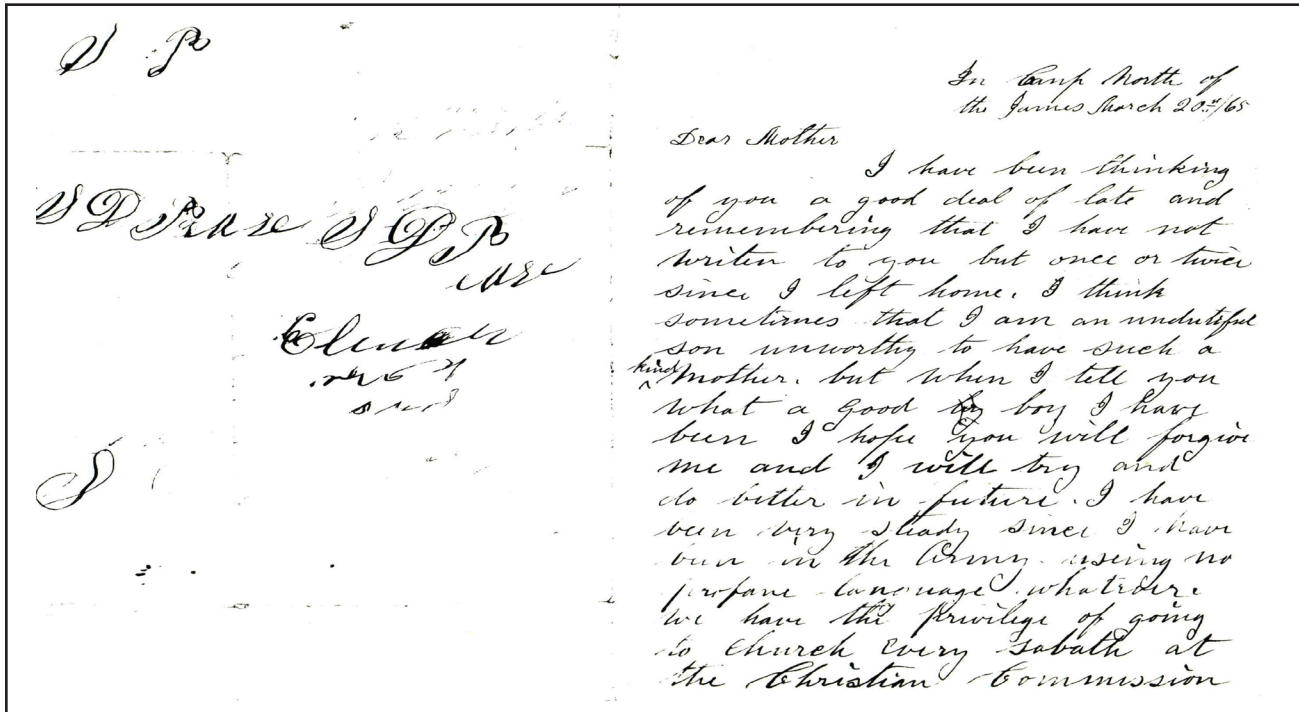 S P
S D Pease S D P
ease
S
In Camp North of
the James March 20th/65
Dear Mother
I have been thinking
of you a good deal of late and
remembering that I have not
writen to you but once or twice
since I left home. I think
sometimes that I am an undutiful
son unworthy to have such a
kind mother. but when I tell you
what a good boy I have
been I hope you will forgive
me and I will try and
do better in future. I have
been very steady since I have
been in the Army. using no
profane language whatever.
we have the privilege of going
to church every sabath at
the Christian Commission